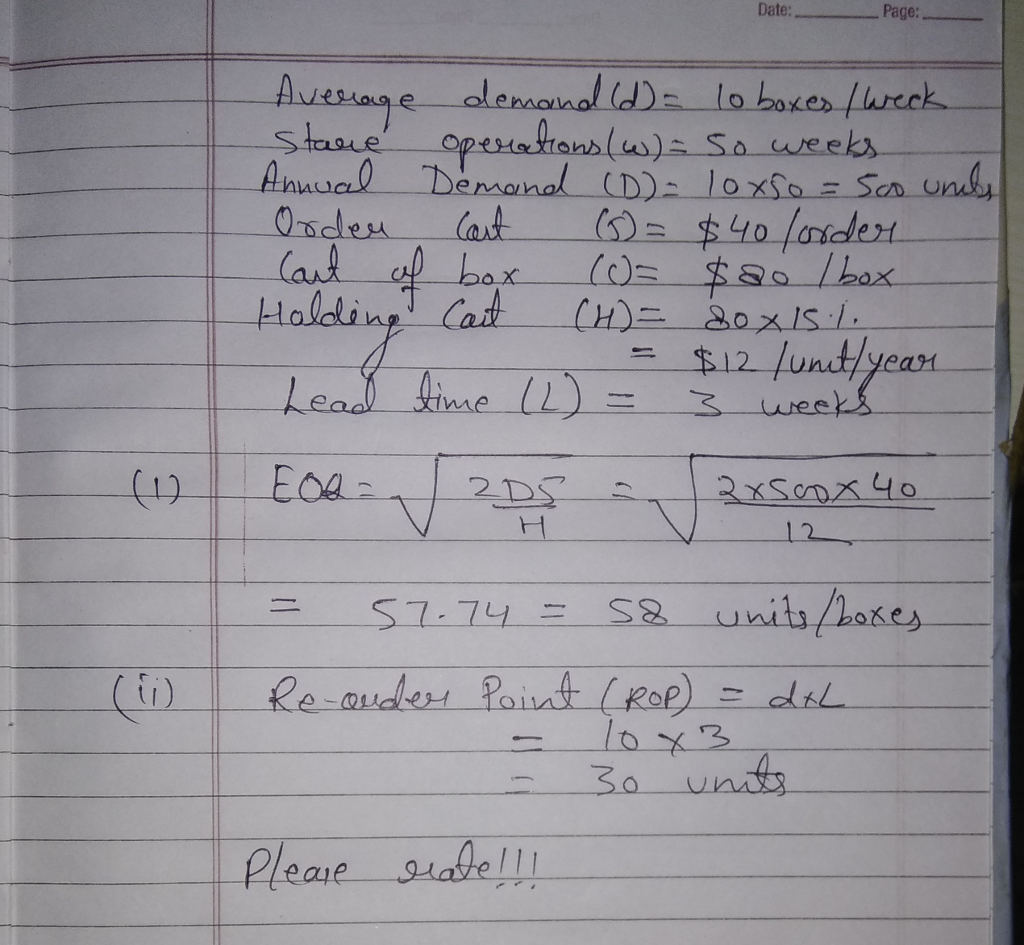 Date: Page:
Average demand (d) = 10 boxes / week
Store operations (w) = 50 weeks
Annual Demand (D) = 10x50 = 500 units
Order Cost (S) = $40 /order
Cost of box (C) = $80 /box
Holding Cost (H) = 80 x 15%
= $12 /unit/year
Lead time (L) = 3 weeks
(i) EOQ = √(2DS/H) = √(2x500x40/12)
= 57.74 = 58 units/boxes
(ii) Re-order Point (ROP) = dxL
= 10 x 3
= 30 units
Please rate!!!